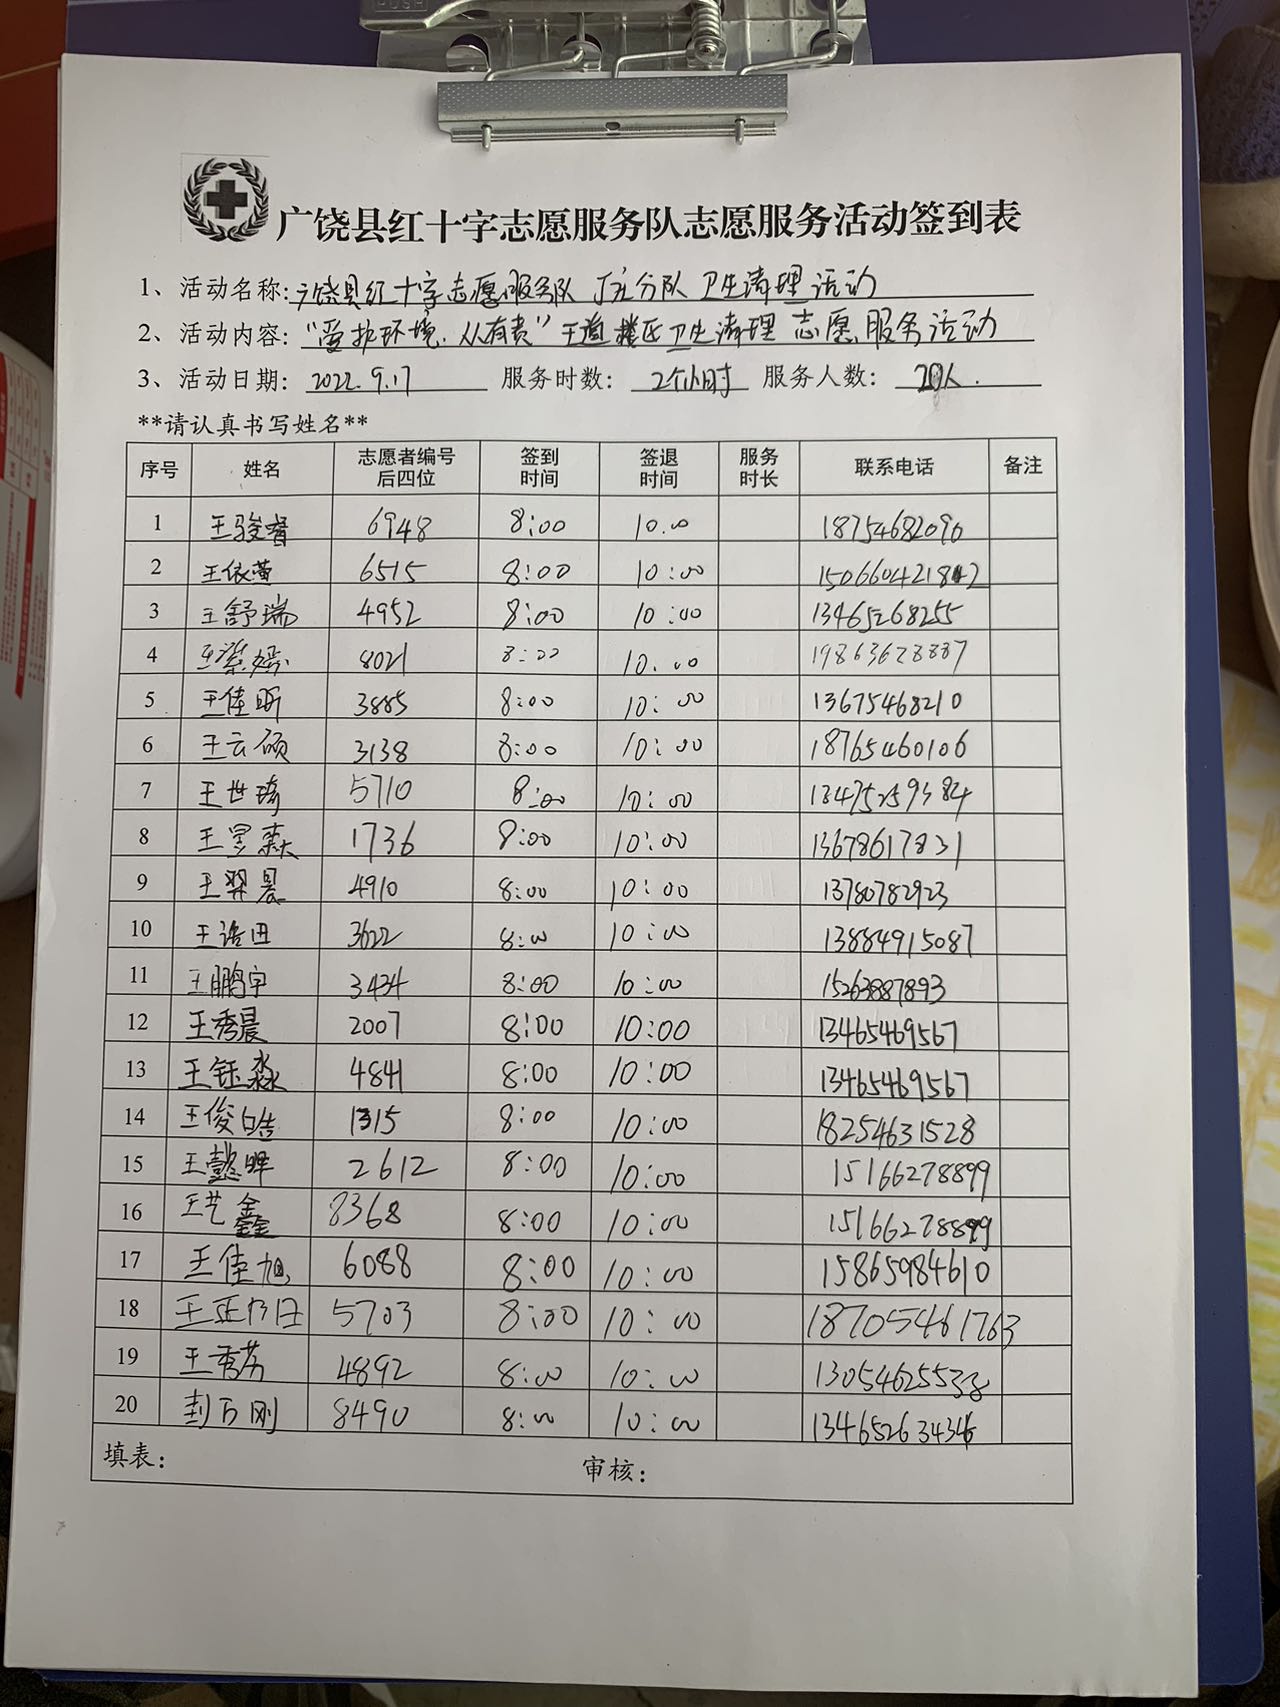 PUSH
广饶县红十字志愿服务队志愿服务活动签到表
1、活动名称:广饶县红十字志愿服务队丁庄分队 卫生清理活动
2、活动内容:“爱护环境.人人有责”王道楼区卫生清理 志愿服务活动
3、活动日期: 2022.9.17 服务时数: 2个小时 服务人数: 20人.
**请认真书写姓名**
序号 姓名 志愿者编号后四位 签到时间 签退时间 服务时长 联系电话 备注
1 王骏睿 6948 8:00 10:00 18754682090
2 王依萱 6515 8:00 10:00
3 王舒瑞 4952 8:00 10:00 13465268255
4 王梁嫣 8021 8:00 10:00 19863628887
5 王佳昕 3885 8:00 10:00 13675468210
6 王云硕 3138 8:00 10:00 18765460106
7 王世琦 5710 8:00 10:00 13475259384
8 王昱森 1736 8:00 10:00 13678617831
9 王羿晨 4910 8:00 10:00 13780782923
10 王语田 3622 8:00 10:00 13884915087
11 王鹏宇 3434 8:00 10:00 15263887893
12 王秀晨 2007 8:00 10:00 13465469567
13 王钰淼 4841 8:00 10:00 13465469567
14 王俊皓 1315 8:00 10:00 18254631528
15 王懿晔 2612 8:00 10:00 15166278899
16 王艺鑫 8368 8:00 10:00 15166278899
17 王佳旭 6088 8:00 10:00 15865984610
18 王延 5703 8:00 10:00 18705461763
19 王秀芬 4892 8:00 10:00 13054625538
20 封万刚 8490 8:00 10:00 13465263434
填表: 审核: